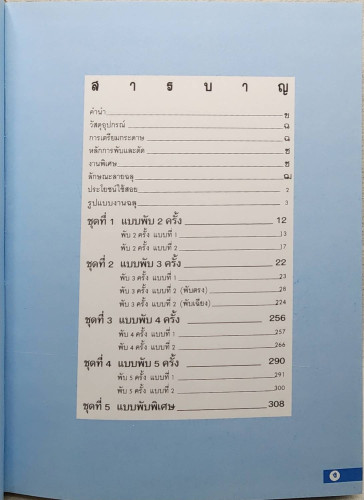 สารบาญ
คำนำ ข
วัสดุอุปกรณ์ ฉ
การเตรียมกระดาษ ฉ
หลักการพับและตัด ช
งานพิเศษ ซ
ลักษณะลายฉลุ
ประโยชน์ใช้สอย 2
รูปแบบงานฉลุ 3
ชุดที่ 1 แบบพับ 2 ครั้ง 12
พับ 2 ครั้ง แบบที่ 1 13
พับ 2 ครั้ง แบบที่ 2 17
ชุดที่ 2 แบบพับ 3 ครั้ง 22
พับ 3 ครั้ง แบบที่ 1 23
พับ 3 ครั้ง แบบที่ 2 (พับตรง) 28
พับ 3 ครั้ง แบบที่ 2 (พับเฉียง) 224
ชุดที่ 3 แบบพับ 4 ครั้ง 256
พับ 4 ครั้ง แบบที่ 1 257
พับ 4 ครั้ง แบบที่ 2 266
ชุดที่ 4 แบบพับ 5 ครั้ง 290
พับ 5 ครั้ง แบบที่ 1 291
พับ 5 ครั้ง แบบที่ 2 300
ชุดที่ 5 แบบพับพิเศษ 308